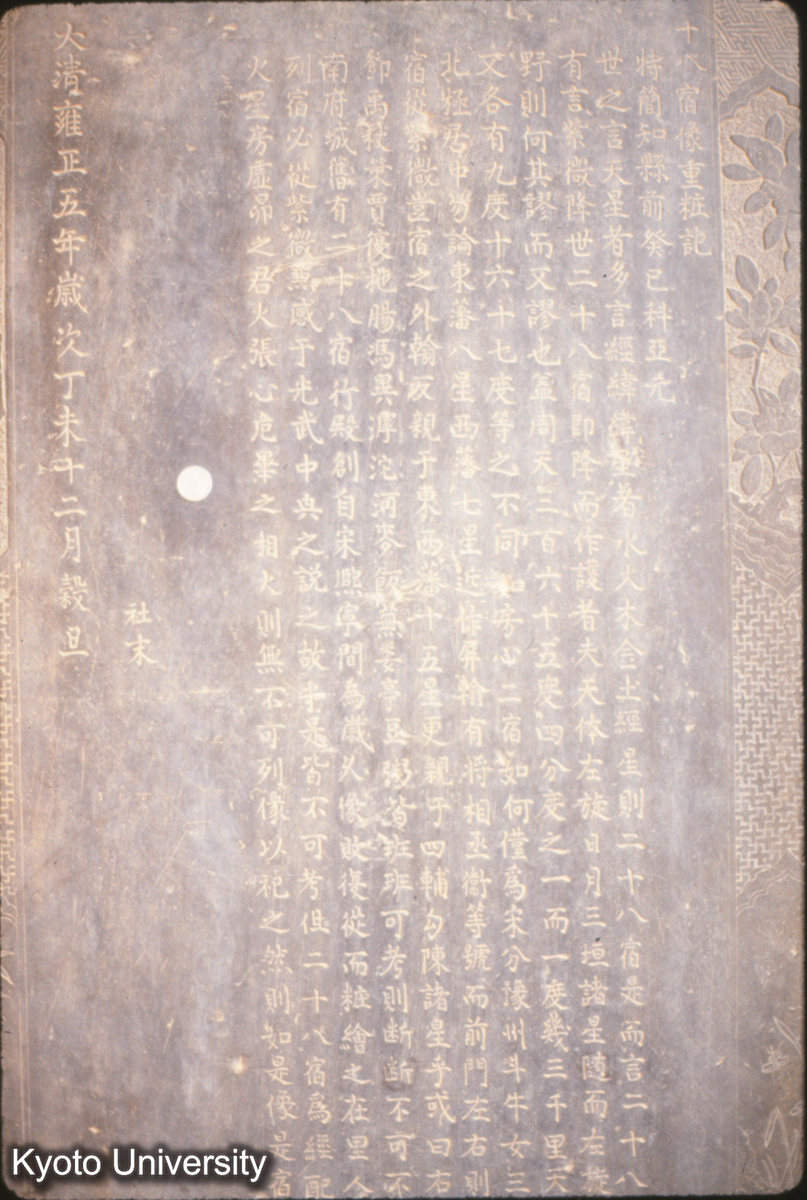 十八宿像重粧記
特簡知縣前癸巳科亞元
世之言天星者多言經緯緯星者水火木金土經星則二十八宿是而言二十八
有言紫微降世二十八宿即降而作護者夫天体左旋日月三垣諸星隨而左旋
野則何其謬而又謬也盖周天三百六十五度四分度之一而一度幾三千里天
文各有九度十六十七度等之不同如房心二宿如何僅為宋分豫州斗牛女三
北極居中勿論東蕃八星西蕃七星近作屏翰有將相丞衛等號而前門左右則
宿從紫微豈宿之外翰反親于東西蕃十五星更親于四輔勾陳諸星乎或曰右
鄧禹杖策賈復抱腸馮異滹沱河麥飯蕪蔞亭豆粥皆班班可考則断断不可不
南府城舊有二十八宿行殿創自宋熈寧間為歲久像敗復從而粧繪之在里人
列宿必從紫微無感于光武中興之説之故乎是皆不可考但二十八宿為經配
火星房虛昴之君火張心危畢之相火則無不可列像以祀之然則知是像是宿
社末
大清雍正五年歲次丁未十二月榖旦
Kyoto University